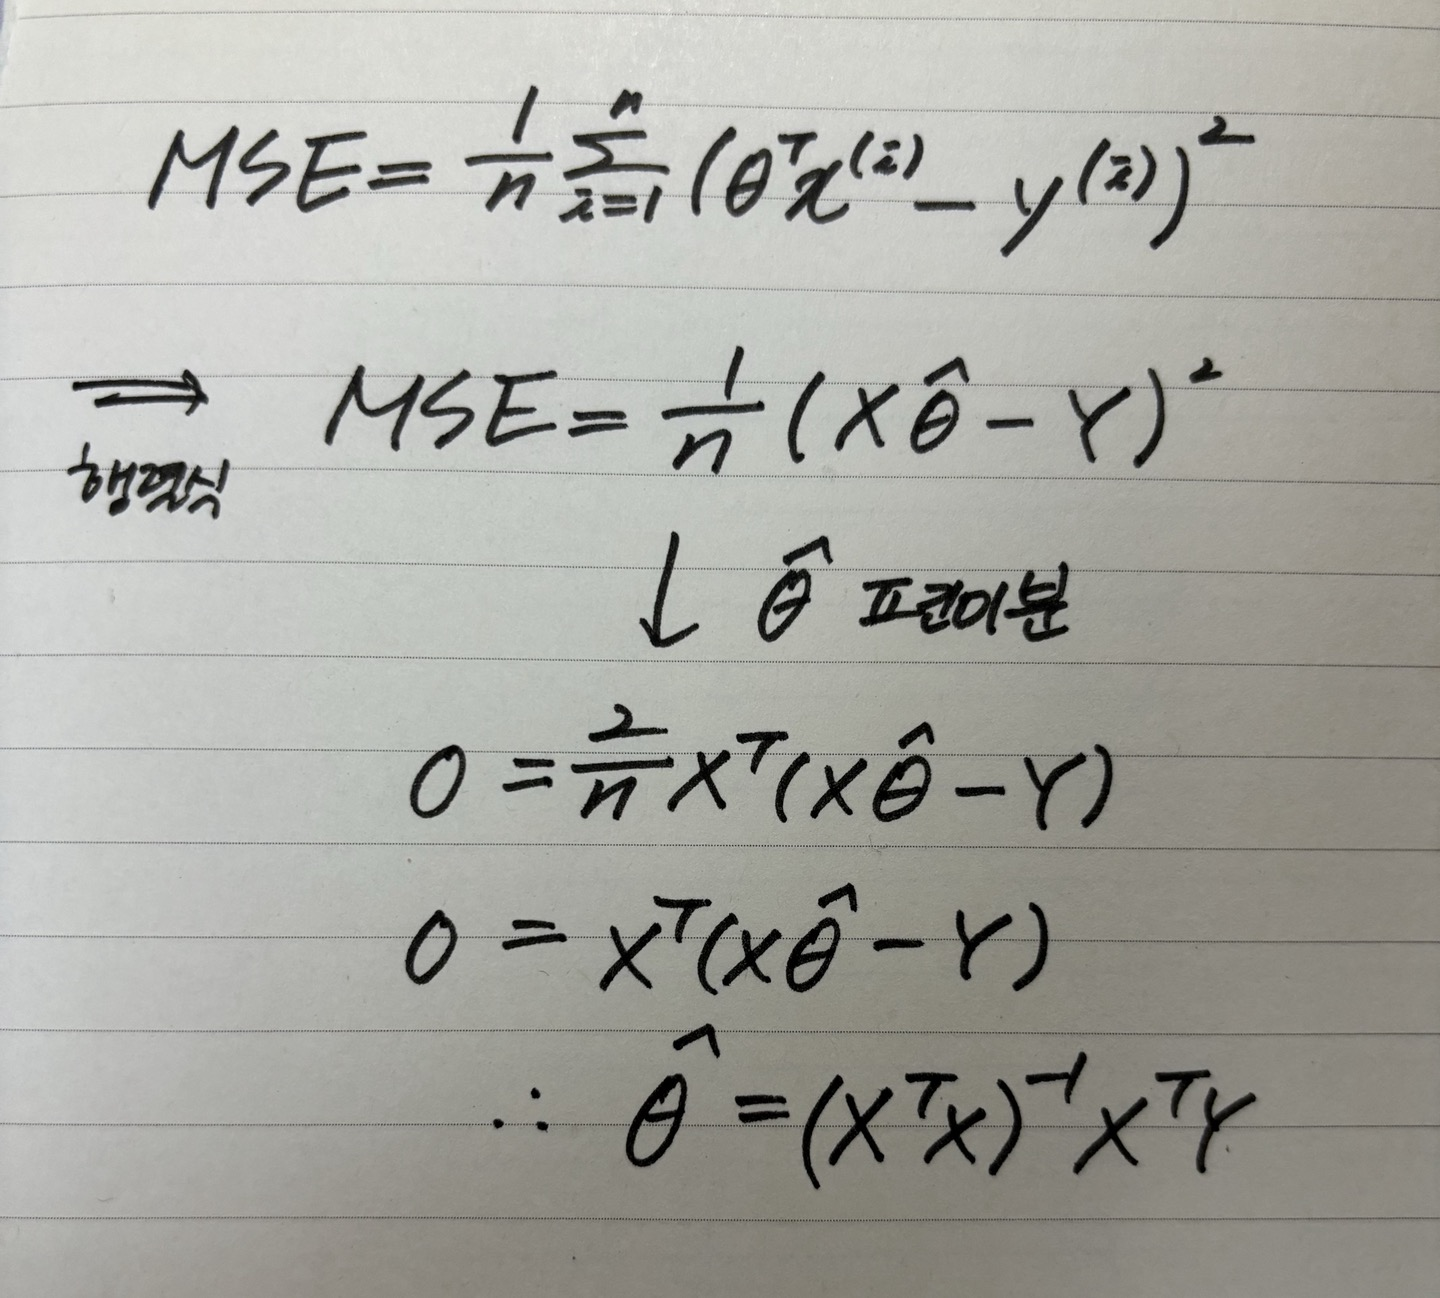 MSE = 1/n Σ_{i=1}^{n} (θᵀx⁽ⁱ⁾ - y⁽ⁱ⁾)²
⇒ MSE = 1/n (Xθ̂ - Y)²
행렬식
↓ θ̂ 편미분
0 = 2/n Xᵀ(Xθ̂ - Y)
0 = Xᵀ(Xθ̂ - Y)
∴ θ̂ = (XᵀX)⁻¹XᵀY